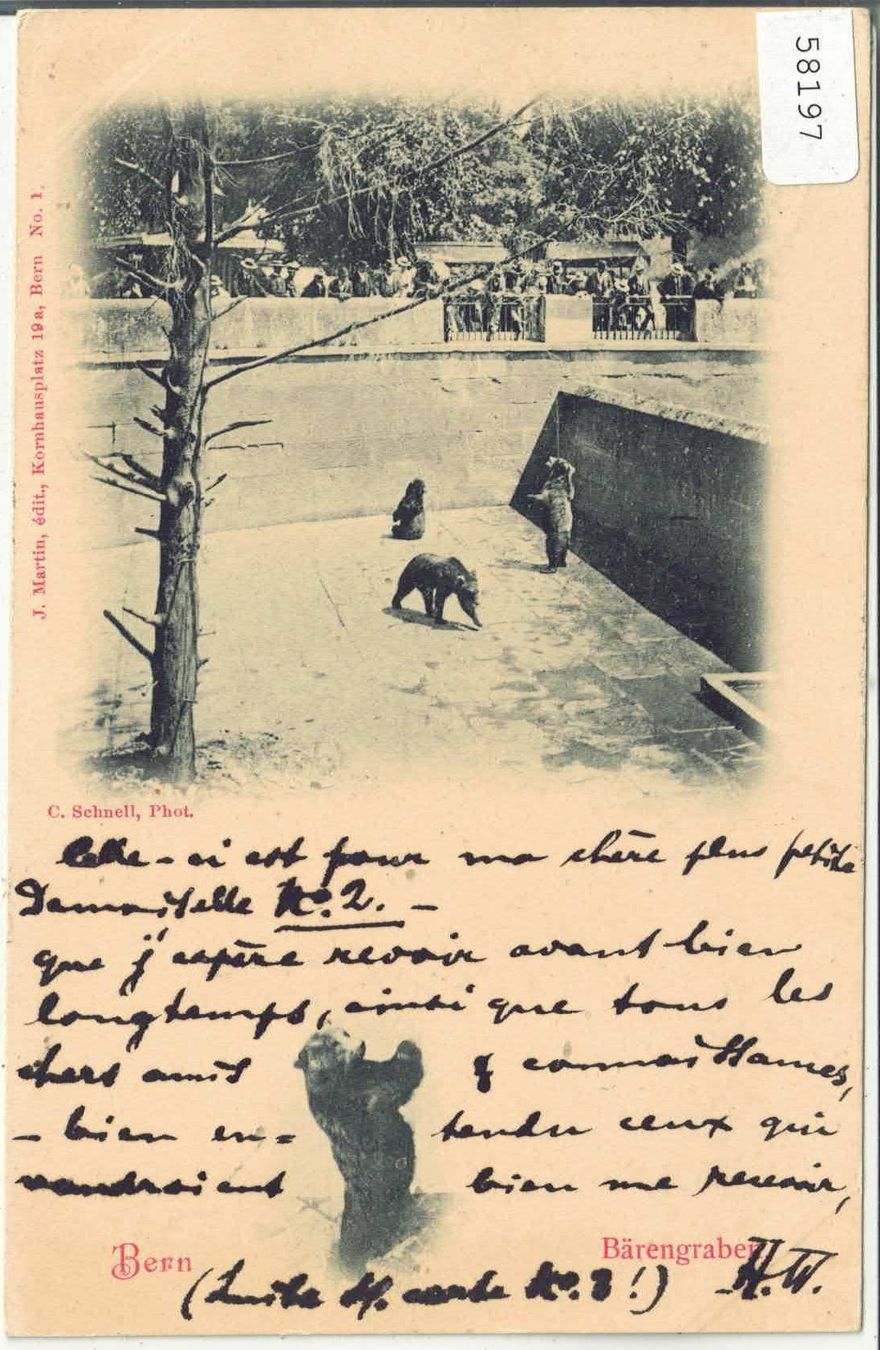 58197
J. Martin, édit., Kornhausplatz 19a, Bern No. 1.
C. Schnell, Phot.
Celle-ci est pour ma chère plus petite
Demoiselle No. 2. –
que j'espère revoir avant bien
longtemps, ainsi que tous les
chers amis & connaissances,
– bien en= tendu ceux qui
voudraient bien me revoir,
Bern
Bärengraben
H.W.
(Suite carte No. !)